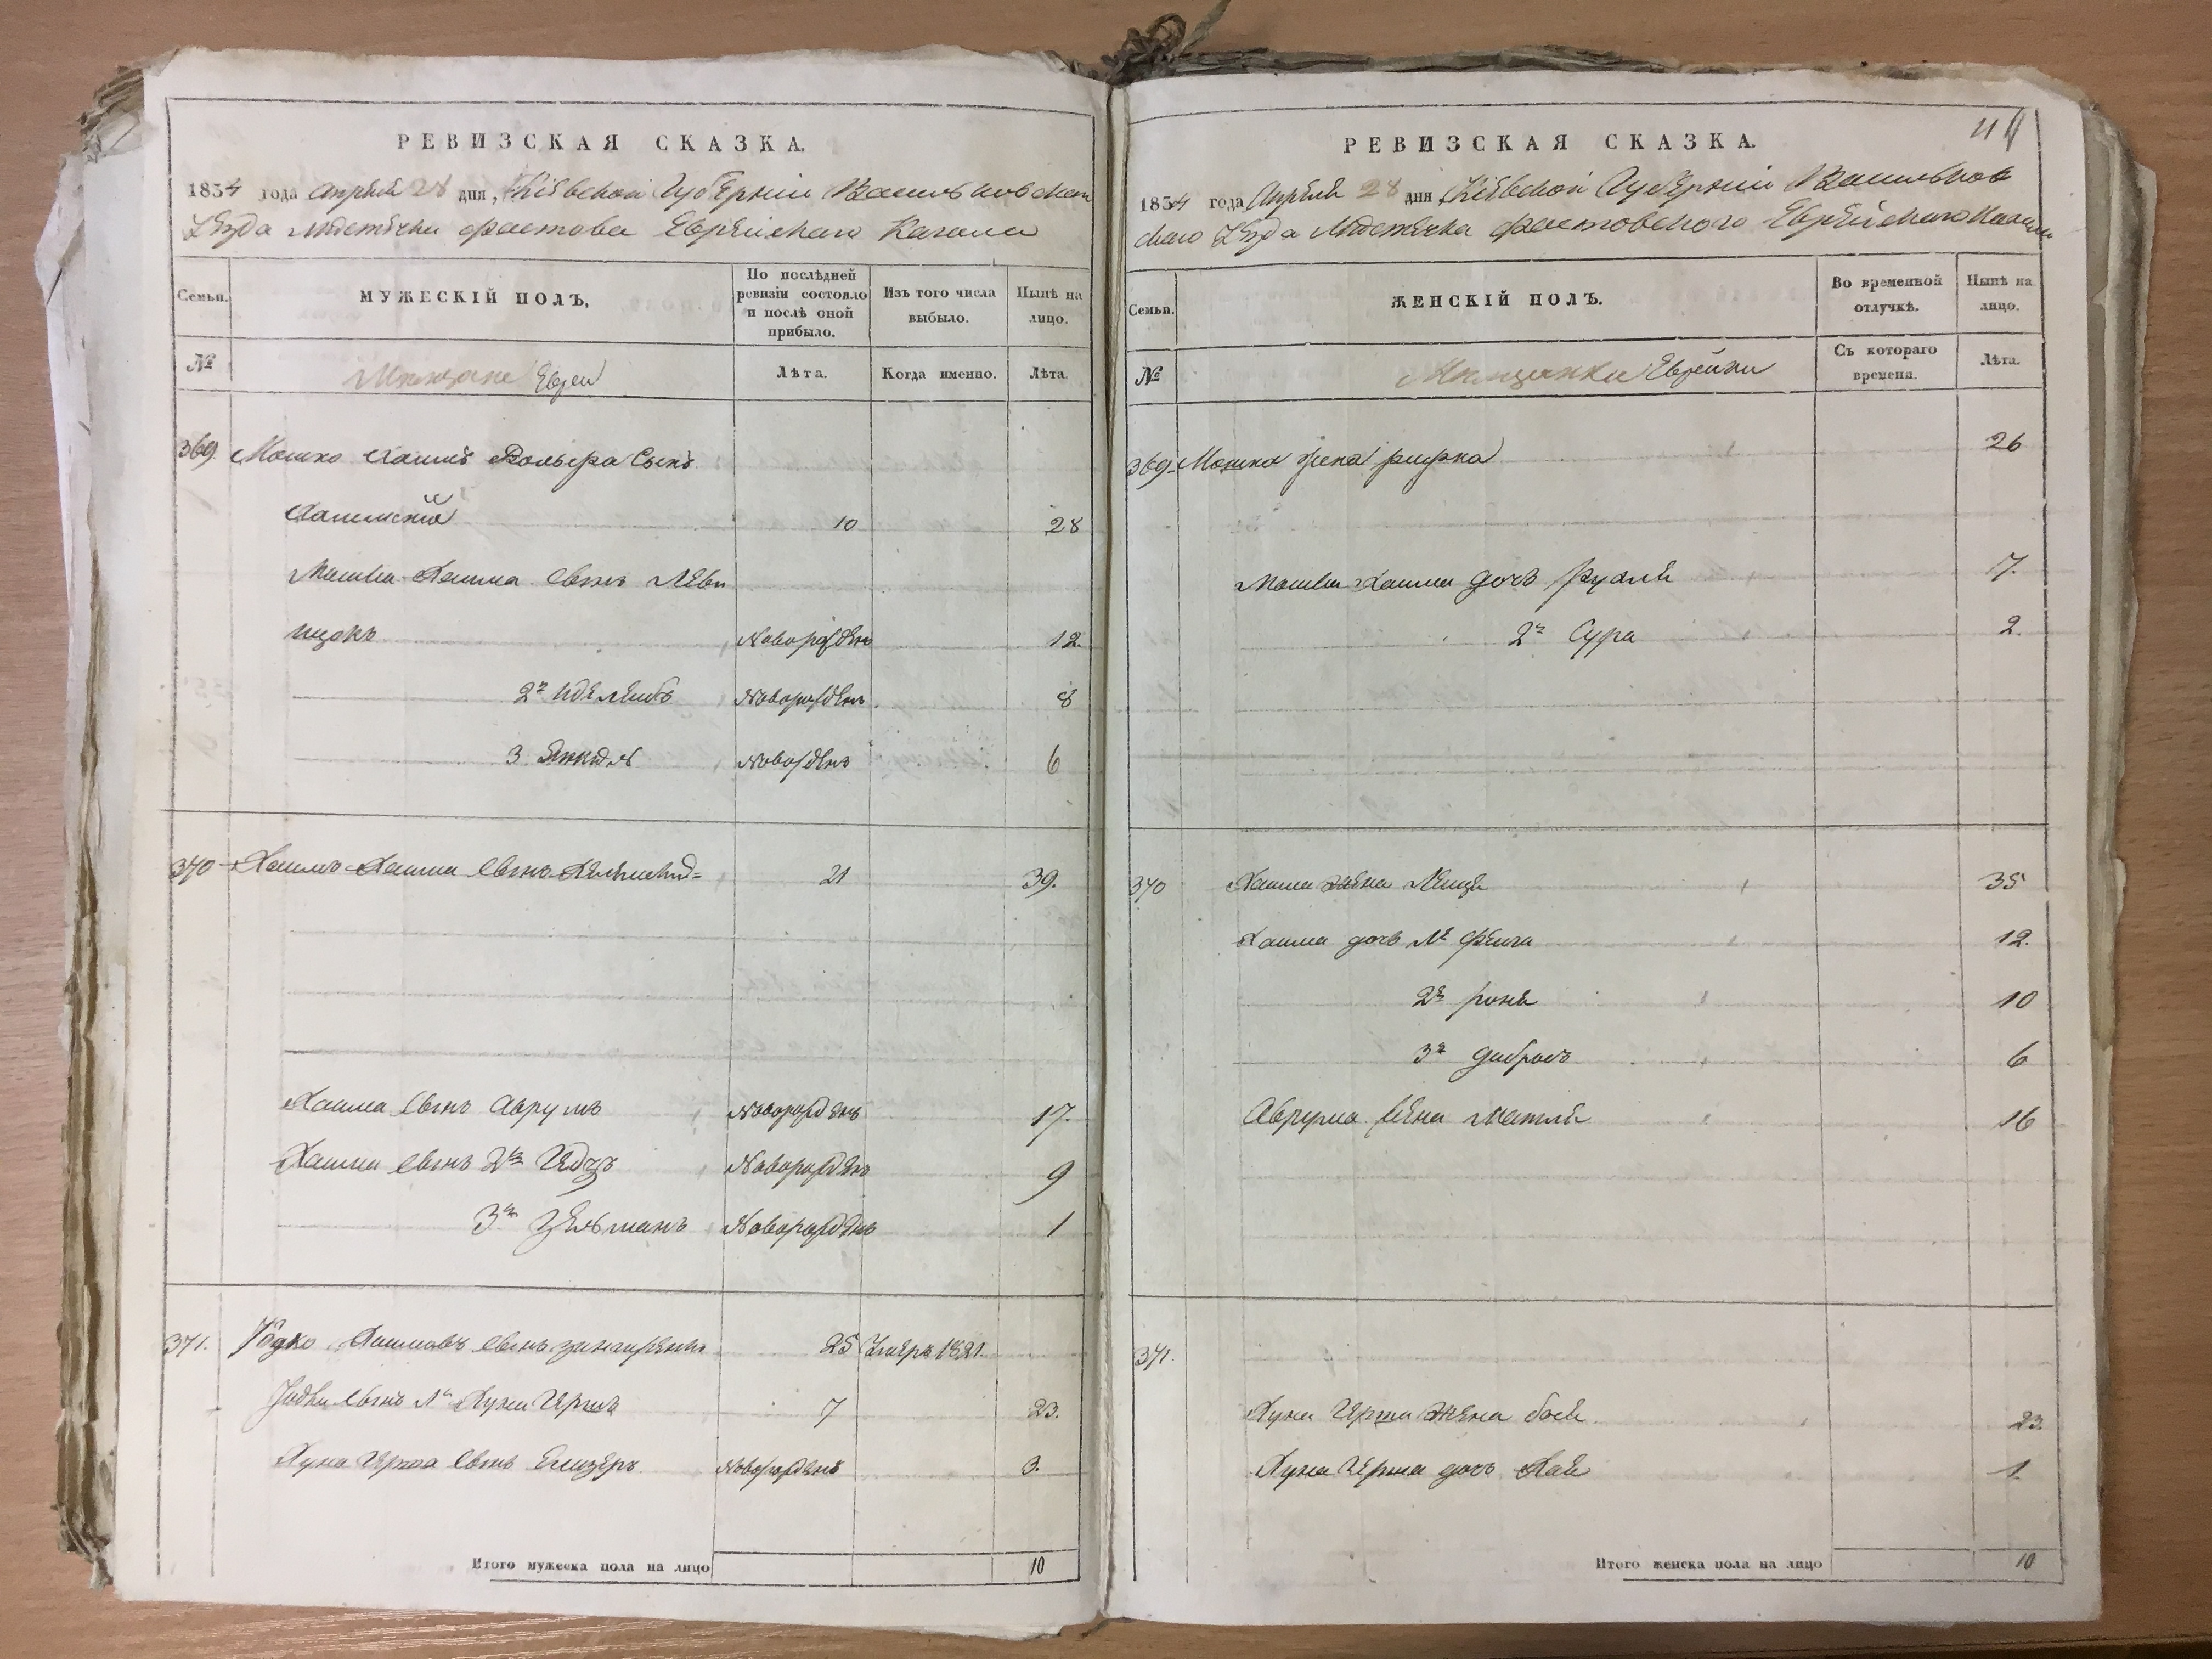 РЕВИЗСКАЯ СКАЗКА.
1834 года Апреля 28 дня, Кіевской Губерніи Васильковскаго
Уезда Местечка Фастова Еврейскаго Кагала
Семьи.
МУЖЕСКІЙ ПОЛЪ.
По послѣдней ревизіи состояло и послѣ оной прибыло.
Изъ того числа выбыло.
Нынѣ на лицо.
№
Мещане Евреи
Лѣта.
Когда именно.
Лѣта.
369 Мошко Хаимъ Сынъ
10 28
Мошка Хаима сынъ Леви
ицокъ Новорожденъ 12.
2й Новорожденъ 8
3 Новорожденъ 6
370 Хаимъ Хаима сынъ 21 39.
Хаима сынъ Аврумъ Новорожденъ 17.
Хаима сынъ 2й Новорожденъ 9
3й Зельманъ Новорожденъ 1
371. Юдко Хаимовъ сынъ 25 Умеръ 1821.
Юдки сынъ 1й Хуна Гершъ 7 23.
Хуна Герша сынъ Елизеръ Новорожденъ 3.
Итого мужеска пола на лицо 10
РЕВИЗСКАЯ СКАЗКА.
1834 года Апреля 28 дня Кіевской Губерніи Васильков
скаго Уезда Местечка Фастовского Еврейскаго Кагала
Семьи.
ЖЕНСКІЙ ПОЛЪ.
Во временной отлучкѣ.
Нынѣ на лицо.
№
Мещанки Еврейки
Съ котораго времени.
Лѣта.
369 Мошка жена ривка 26
Мошка Хаима дочь рухля 7.
2я Сура 2.
370 Хаима жена 35
Хаима дочь 1я Фейга 12.
2я роня 10
3я 6
Аврума жена Матля 16
371.
Хуна Герша жена бася 23
Хуна Герша дочь Хая 1
Итого женска пола на лицо 10